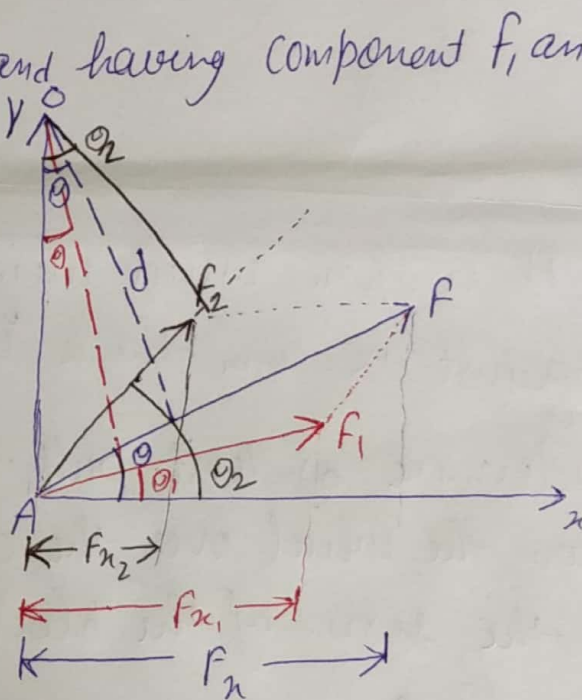 and having component F, an
O
Y
θ2
θ
θ1
d
F2
F
F1
θ
θ1
θ2
A
x
Fx2
Fx1
Fx